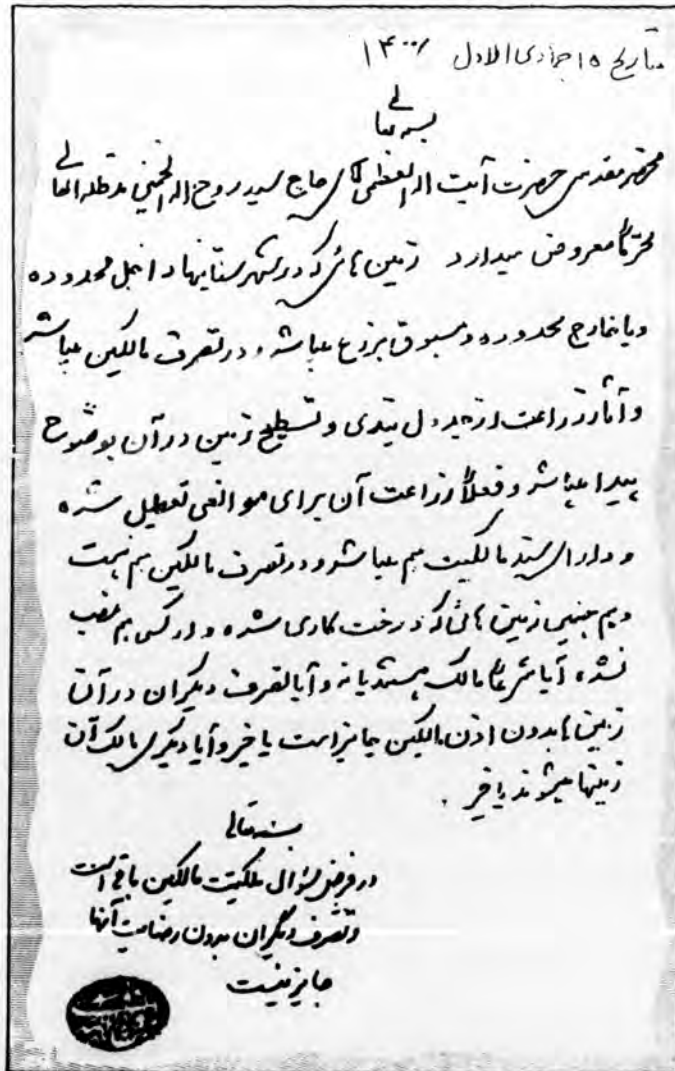 بتاریخ ۱۵ جمادی الاول ۱۴۰۰
بسمه تعالی
محضر مقدس حضرت آیت اله العظمی آقای حاج سید روح اله الخمینی مدظله العالی
محترماً معروض میدارد زمین هائی که در شهرستانها داخل محدوده
و یا خارج محدوده و مسبوق بزرع میباشد و در تصرف مالکین میباشد
و آثار زراعت از جدول بندی و تسطیح زمین در آن بوضوح
پیدا میباشد و فعلاً زراعت آن برای موانعی تعطیل شده
و دارای سند مالکیت هم میباشد و در تصرف مالکین هم هست
و هم چنین زمین هائی که درخت کاری شده و از کسی هم غصب
نشده آیا شرعاً مالک هستند یا نه و آیا تصرف دیگران در آن
زمین ها بدون اذن مالکین جایز است یا خیر و آیا دیگری مالک آن
زمینها میشوند یا خیر .
بسمه تعالی
در فرض سؤال ملکیت مالکین باقی است
و تصرف دیگران بدون رضایت آنها
جایز نیست